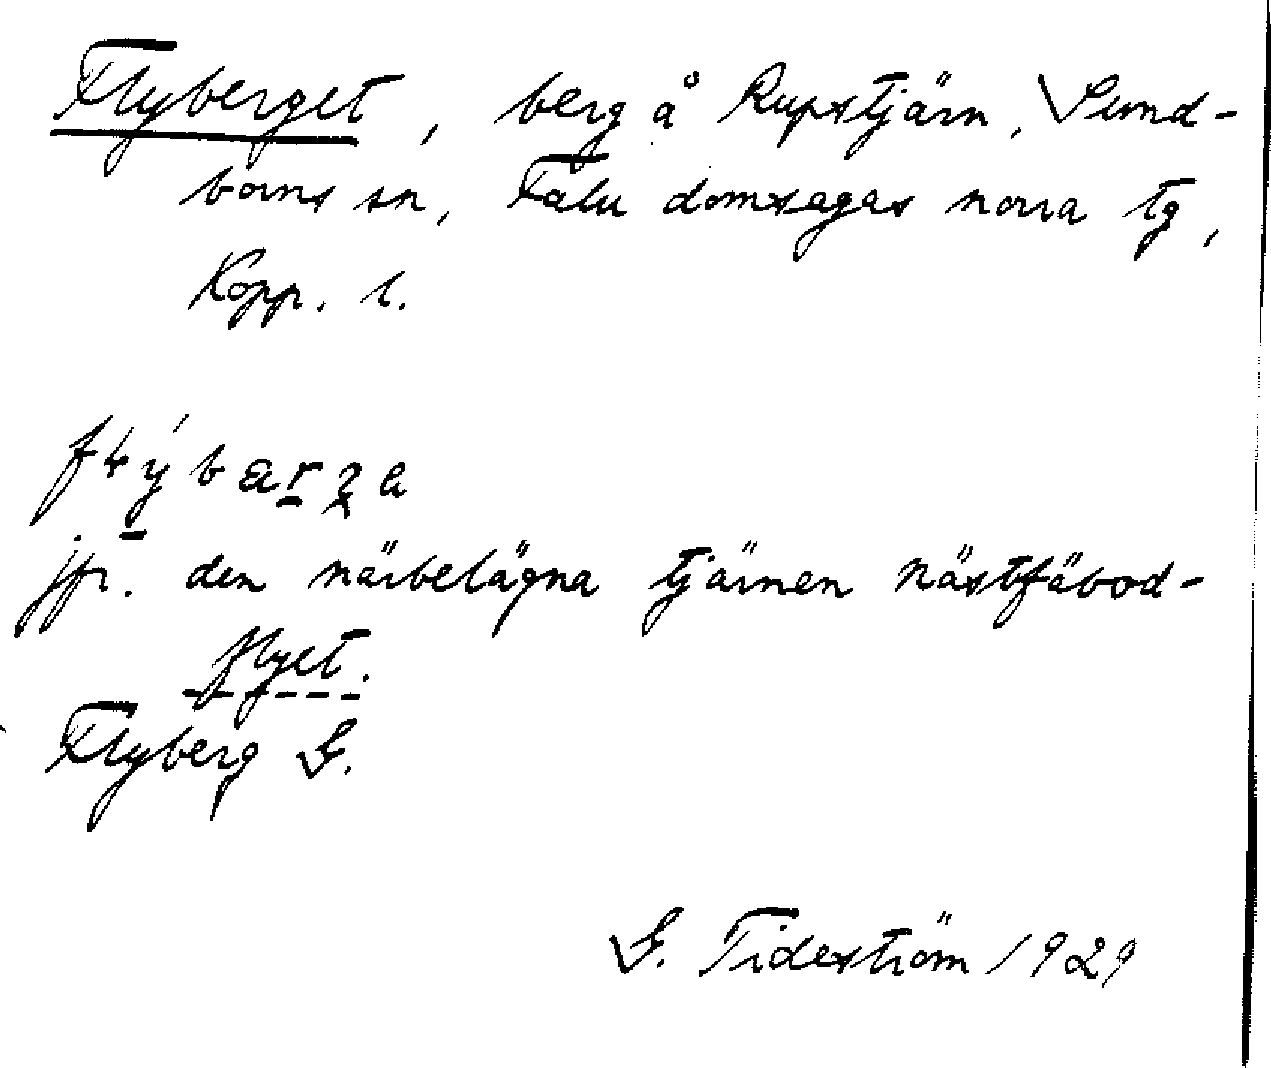 Flyberget, berg å Rupstjärn, Sund-
borns sn, Falu domsagas norra tg,
Kopp. l.
jfr. den närbelägna tjärnen nästfäbod-
flyet.
Flyberg G.
G. Tideström 1929